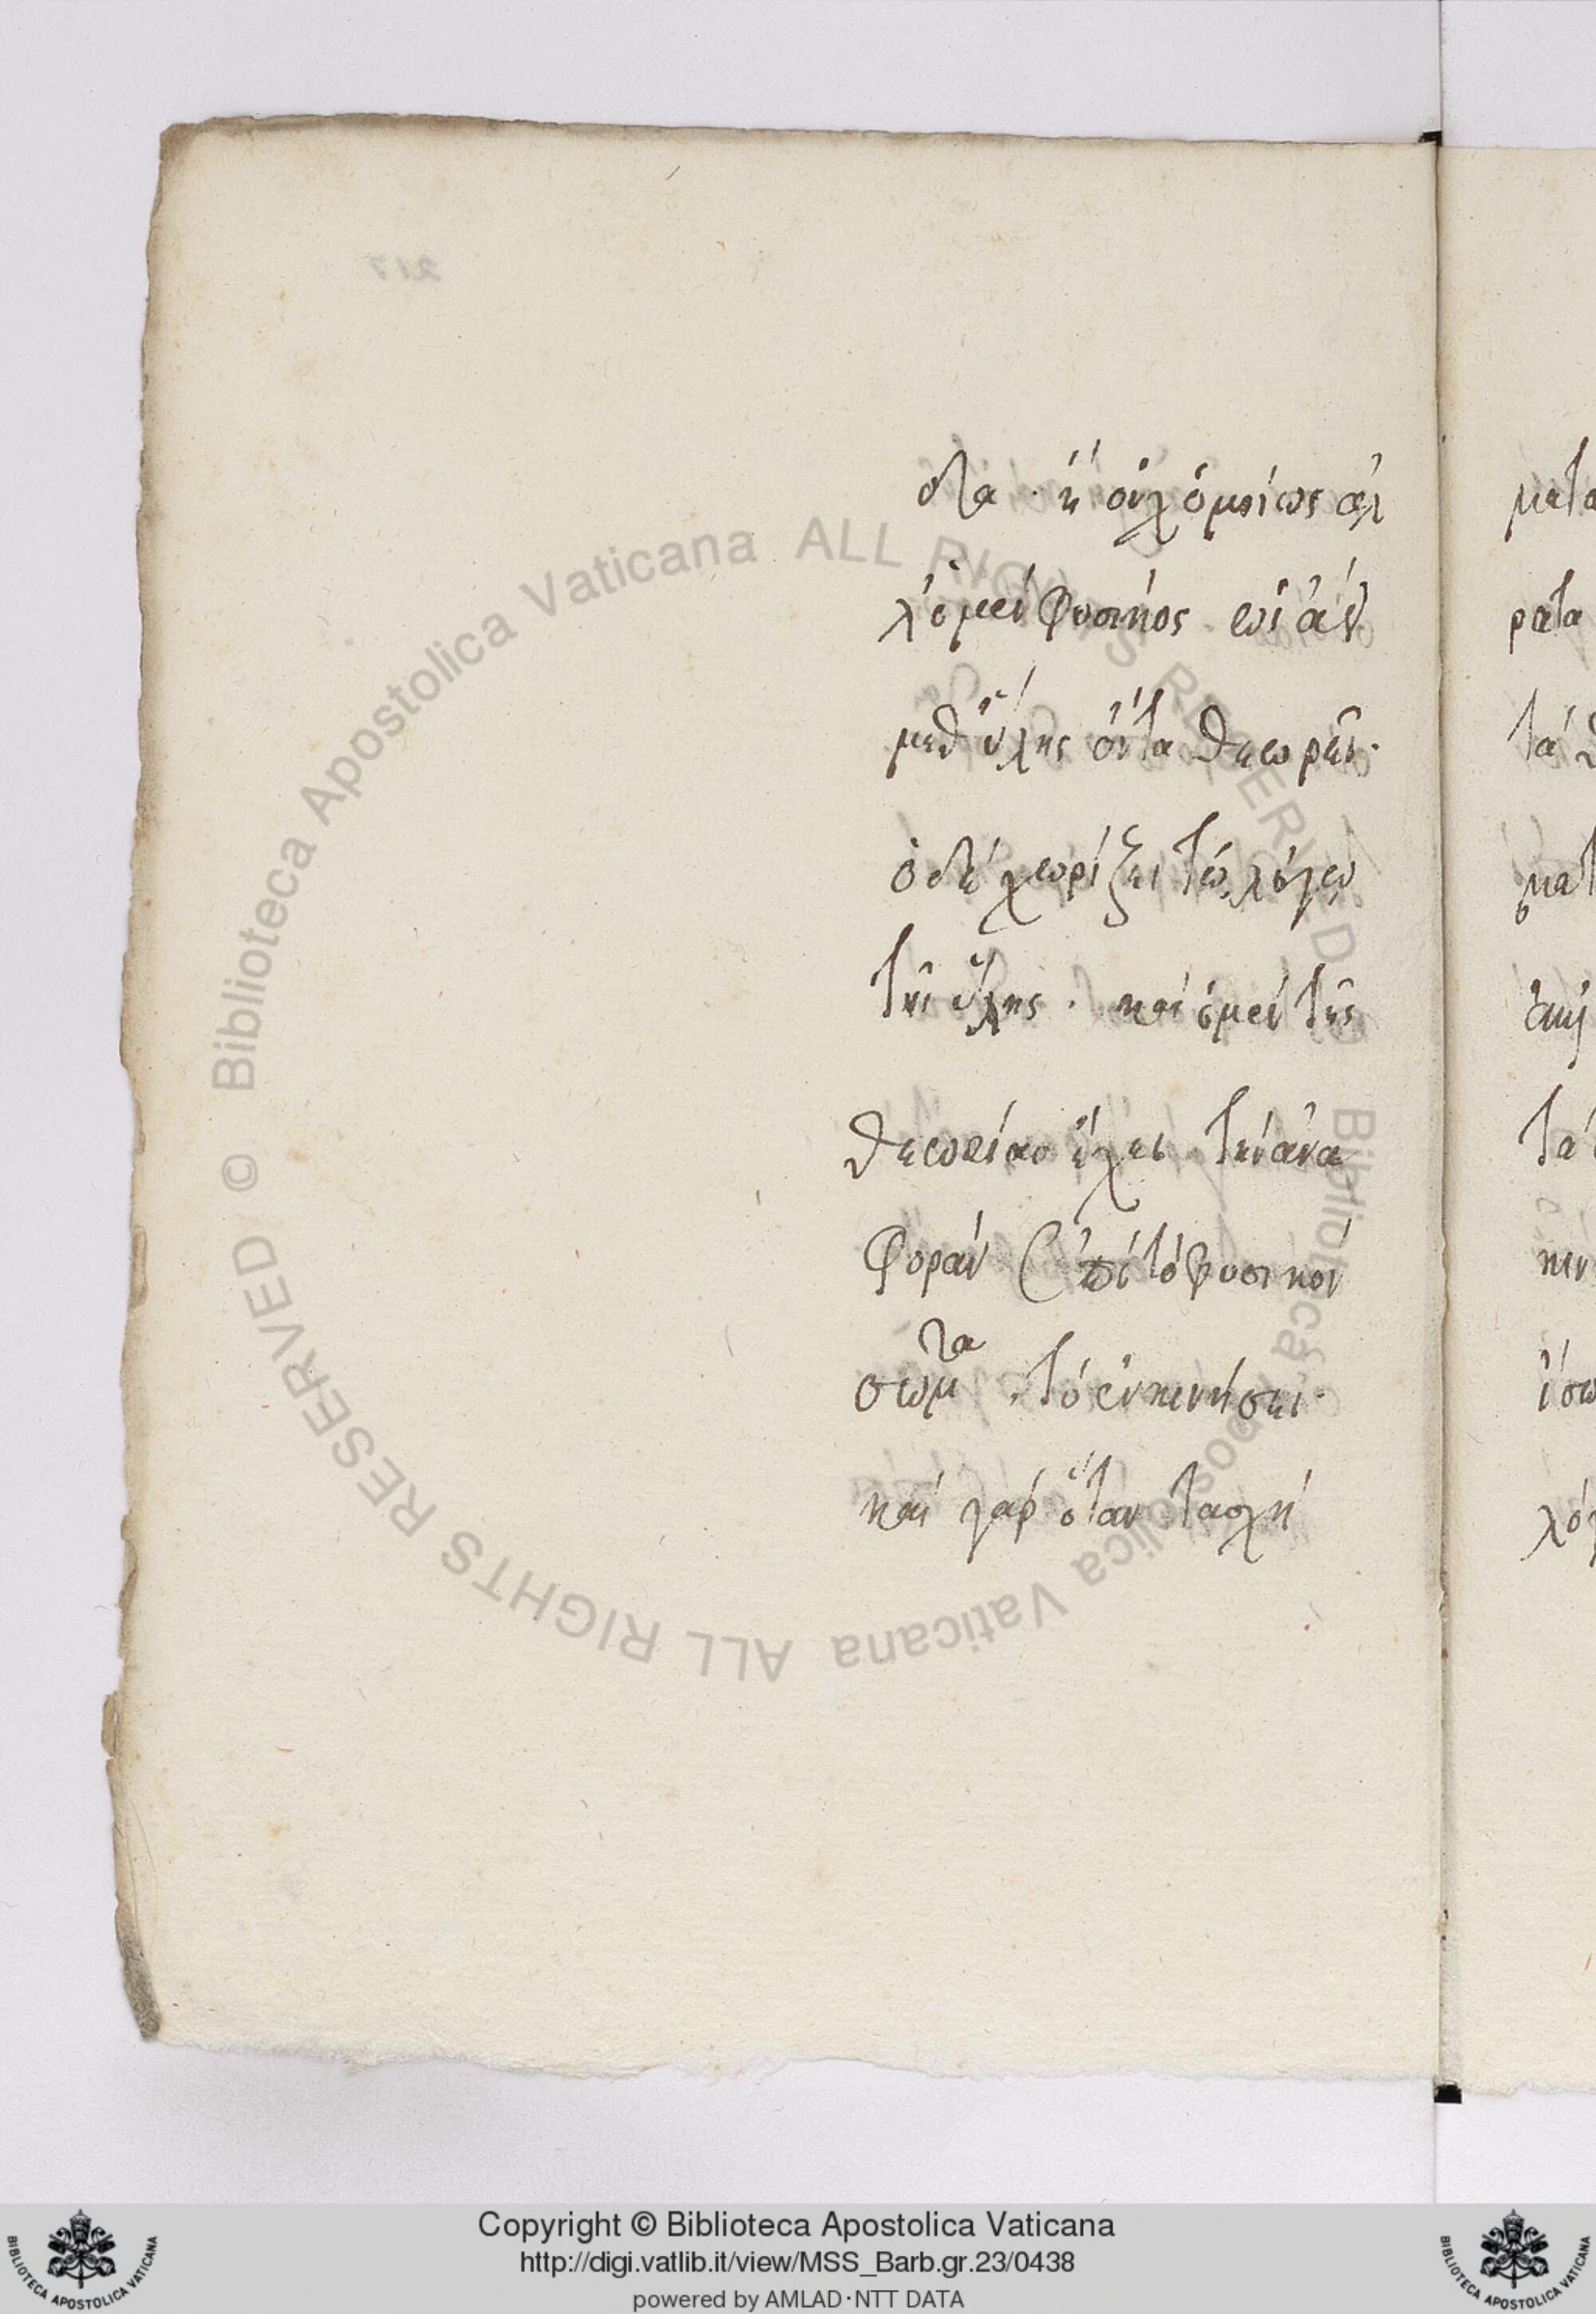 217
ὄντα · ἢ οὐχ ὁμοίως ἀλ
λ' ὁ μὲν φυσικὸς
μεθ' ὕλης ὄντα θεωρεῖ·
ὁ δὲ χωρίζει τῷ λόγῳ
τῆς ὕλης · καὶ ὁ μὲν τῆς
θεωρίας ἔχει τὴν ἀνα
φορὰν ἐπὶ τὸ φυσικὸν
σῶμα τὸ ἐν κινήσει·
καὶ γὰρ ὅταν τὰ σχή
ματα
ρατα
τὰ
ματ
τὰ
κιν
ἴσω
λόγ
Biblioteca Apostolica Vaticana ALL RIGHTS RESERVED ©
Biblioteca Apostolica Vaticana ALL RIGHTS RESERVED ©
Copyright © Biblioteca Apostolica Vaticana
http://digi.vatlib.it/view/MSS_Barb.gr.23/0438
powered by AMLAD·NTT DATA
BIBLIOTECA APOSTOLICA VATICANA
BIBLIOTECA APOSTOLICA VATICANA